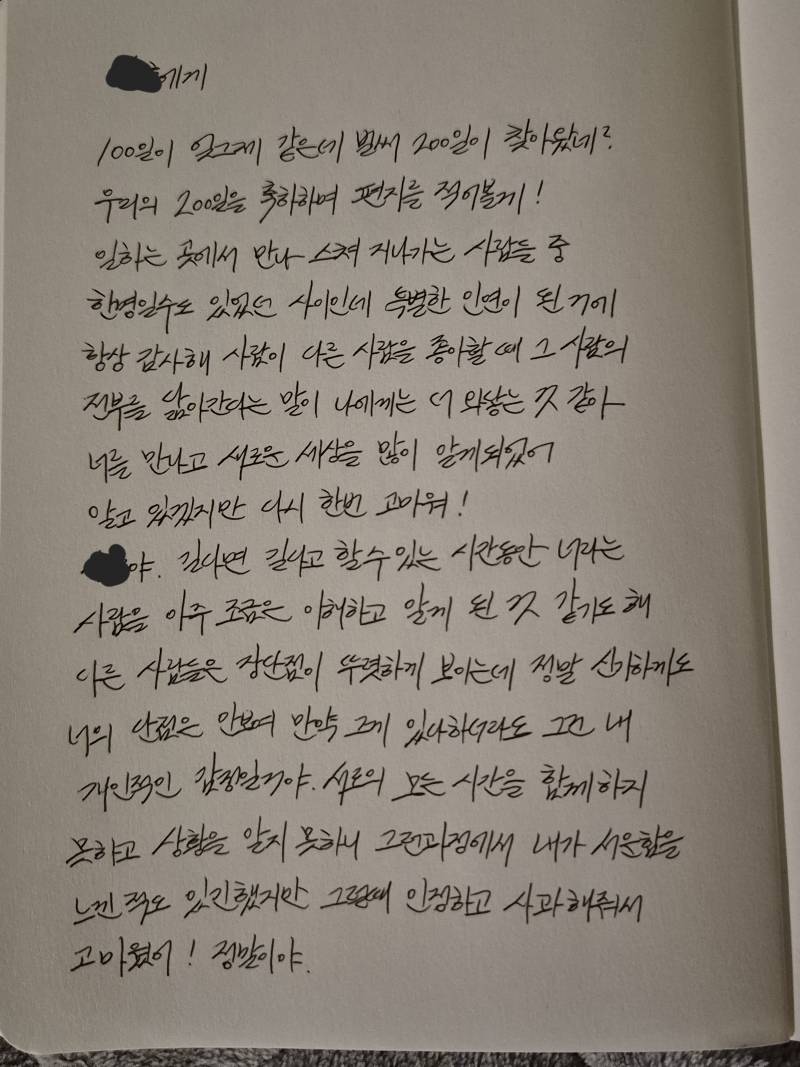 에게
100일이 엊그제 같은데 벌써 200일이 찾아왔네?
우리의 200일을 축하하며 편지를 적어볼게!
일하는 곳에서 만나 스쳐 지나가는 사람들 중
한명일수도 있었던 사이인데 특별한 인연이 된거에
항상 감사해 사람이 다른 사람을 좋아할때 그 사람의
전부를 닮아간다는 말이 나에게는 더 와닿는 것 같아
너를 만나고 새로운 세상을 많이 알게되었어
알고 있겠지만 다시 한번 고마워!
야. 길다면 길다고 할수있는 시간동안 너라는
사람을 아주 조금은 이해하고 알게 된 것 같기도 해
다른 사람들은 장단점이 뚜렷하게 보이는데 정말 신기하게도
너의 단점은 안보여 만약 그게 있다하더라도 그건 내
개인적인 감정일거야. 서로의 모든 시간을 함께하지
못하고 상황을 알지 못하니 그런과정에서 내가 서운함을
느낀적도 있긴했지만 그럴때 인정하고 사과해줘서
고마웠어! 정말이야.